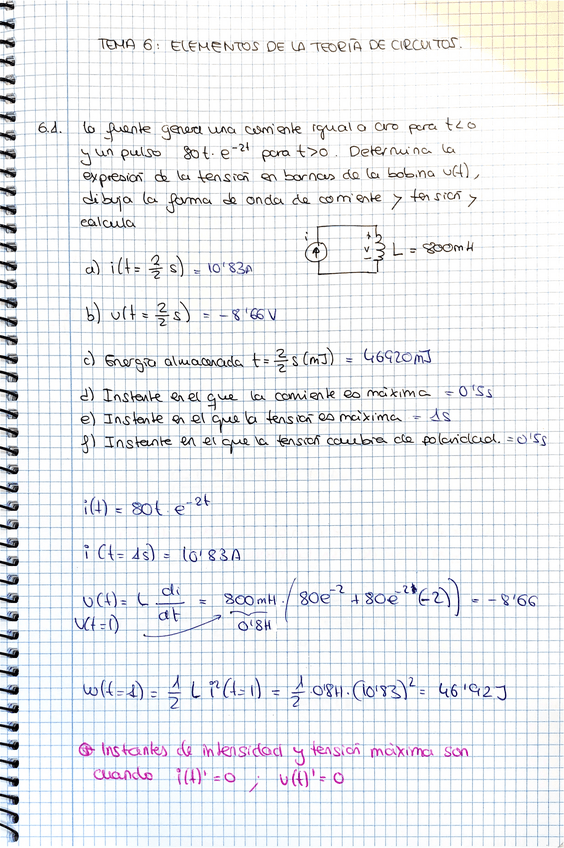 TEMA 6: ELEMENTOS DE LA TEORÍA DE CIRCUITOS.
6.1. La fuente genera una corriente igual a cero para t<0
y un pulso 80t · e^-2t para t>0. Determina la
expresión de la tensión en bornas de la bobina v(t),
dibuja la forma de onda de corriente y tensión y
calcula
i + v - L = 800mH
a) i(t = 2/2 s) = 10'83A
b) v(t = 2/2 s) = -8'66V
c) Energía almacenada t = 2/2 s (mJ) = 46920mJ
d) Instante en el que la corriente es máxima = 0'5s
e) Instante en el que la tensión es máxima = 1s
f) Instante en el que la tensión cambia de polaridad. = 0'5s
i(t) = 80t · e^-2t
i(t=1s) = 10'83A
v(t) = L di/dt = 800mH · (80e^-2 + 80e^-2·1 (-2)) = -8'66
v(t=1) 0'8H
w(t=1) = 1/2 L i²(t=1) = 1/2 · 0'8H · (10'83)² = 46'92J
Instantes de intensidad y tensión máxima son
cuando i(t)' = 0 ; v(t)' = 0